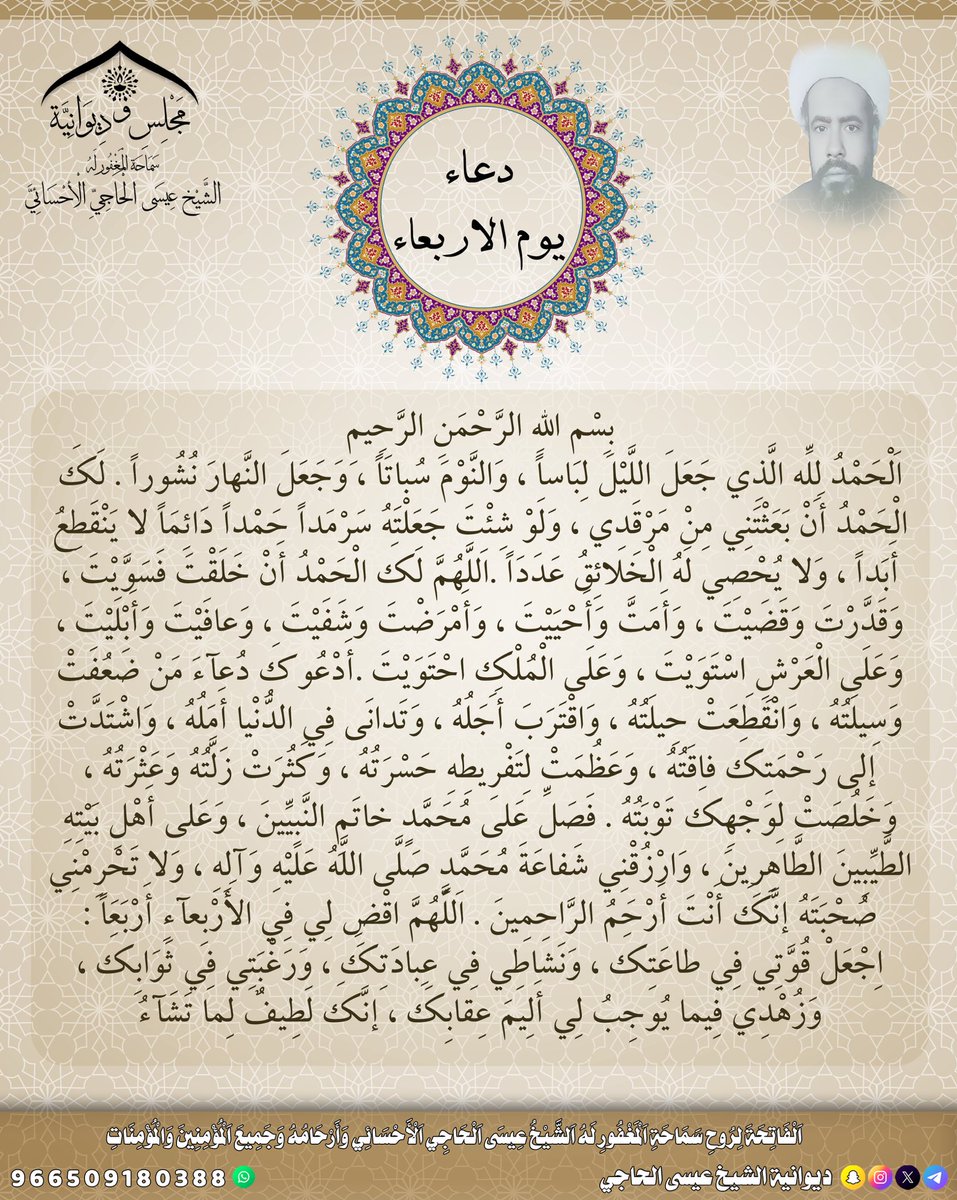 مَجْلِس وَدِيوَانِيَّة
سَمَاحَة المَغْفُور لَهُ
الشَّيْخ عِيسَى الْحَاجِيّ الْأَحْسَائِيَّ
دعاء
يوم الاربعاء
بِسْمِ اللهِ الرَّحْمَنِ الرَّحِيمِ
اَلْحَمْدُ لِلَّهِ الَّذِي جَعَلَ اللَّيْلَ لِبَاساً ، وَالنَّوْمَ سُباتَاً ، وَجَعَلَ النَّهارَ نُشُوراً . لَكَ
الْحَمْدُ أَنْ بَعَثْتَنِي مِنْ مَرْقَدِي ، وَلَوْ شِئْتَ جَعَلْتَهُ سَرْمَداً حَمْداً دَائِمَاً لا يَنْقَطِعُ
أبَداً ، وَلا يُحْصِي لَهُ الْخَلائِقُ عَدَدَاً .اَللَّهُمَّ لَكَ الْحَمْدُ أنْ خَلَقْتَ فَسَوَّيْتَ ،
وَقَدَّرْتَ وَقَضَيْتَ ، وَأمَتَّ وَأحْيَيْتَ ، وَأمْرَضْتَ وَشَفَيْتَ ، وَعافَيْتَ وَأبْلَيْتَ ،
وَعَلَى الْعَرْشِ اسْتَوَيْتَ ، وَعَلَى الْمُلْكِ احْتَوَيْتَ .أدْعُوكَ دُعآءَ مَنْ ضَعُفَتْ
وَسِيلَتُهُ ، وَانْقَطِعَتْ حِيلَتُهُ ، وَاقْتَرَبَ أجَلُهُ ، وَتَدانَى فِي الدُّنْيا أمَلُهُ ، وَاشْتَدَّتْ
إلى رَحْمَتِكَ فاقَتُهُ ، وَعَظُمَتْ لِتَفْرِيطِهِ حَسْرَتُهُ ، وَكَثُرَتْ زَلَّتُهُ وَعَثْرَتُهُ ،
وَخَلُصَتْ لِوَجْهِكَ تَوْبَتُهُ . فَصَلِّ عَلَى مُحَمَّد خاتَمِ النَّبِيِّينَ ، وَعَلى أهْلِ بَيْتِهِ
الطَّيِّبِينَ الطَّاهِرِينَ ، وَارْزُقْنِي شَفاعَةَ مُحَمَّدٍ صَلَّى اللَّهُ عَلَيْهِ وَآلِهِ ، وَلا تَحْرِمْنِي
صُحْبَتَهُ إنَّكَ أنْتَ أرْحَمُ الرَّاحِمِينَ . اَللَّهُمَّ اقْضِ لِي فِي الأَرْبعآءِ أرْبَعَاً :
اِجْعَلْ قُوَّتِي فِي طاعَتِكَ ، وَنَشاطِي فِي عِبادَتِكَ ، وَرَغْبَتِي فِي ثَوَابِكَ ،
وَزُهْدِي فِيما يُوجِبُ لِي ألِيمَ عِقابِكَ ، إنَّكَ لَطِيفٌ لِما تَشَآءُ
اَلْفَاتِحَةَ لِرُوحِ سَمَاحَةِ اَلْمَغْفُورِ لَهُ اَلشَّيْخُ عِيسَى اَلْحَاجِي اَلْأَحْسَائِي وَأَرْحَامُهُ وَجَمِيعَ اَلْمُؤْمِنِينَ وَالْمُؤْمِنَاتِ
ديوانية الشيخ عيسى الحاجي
966509180388